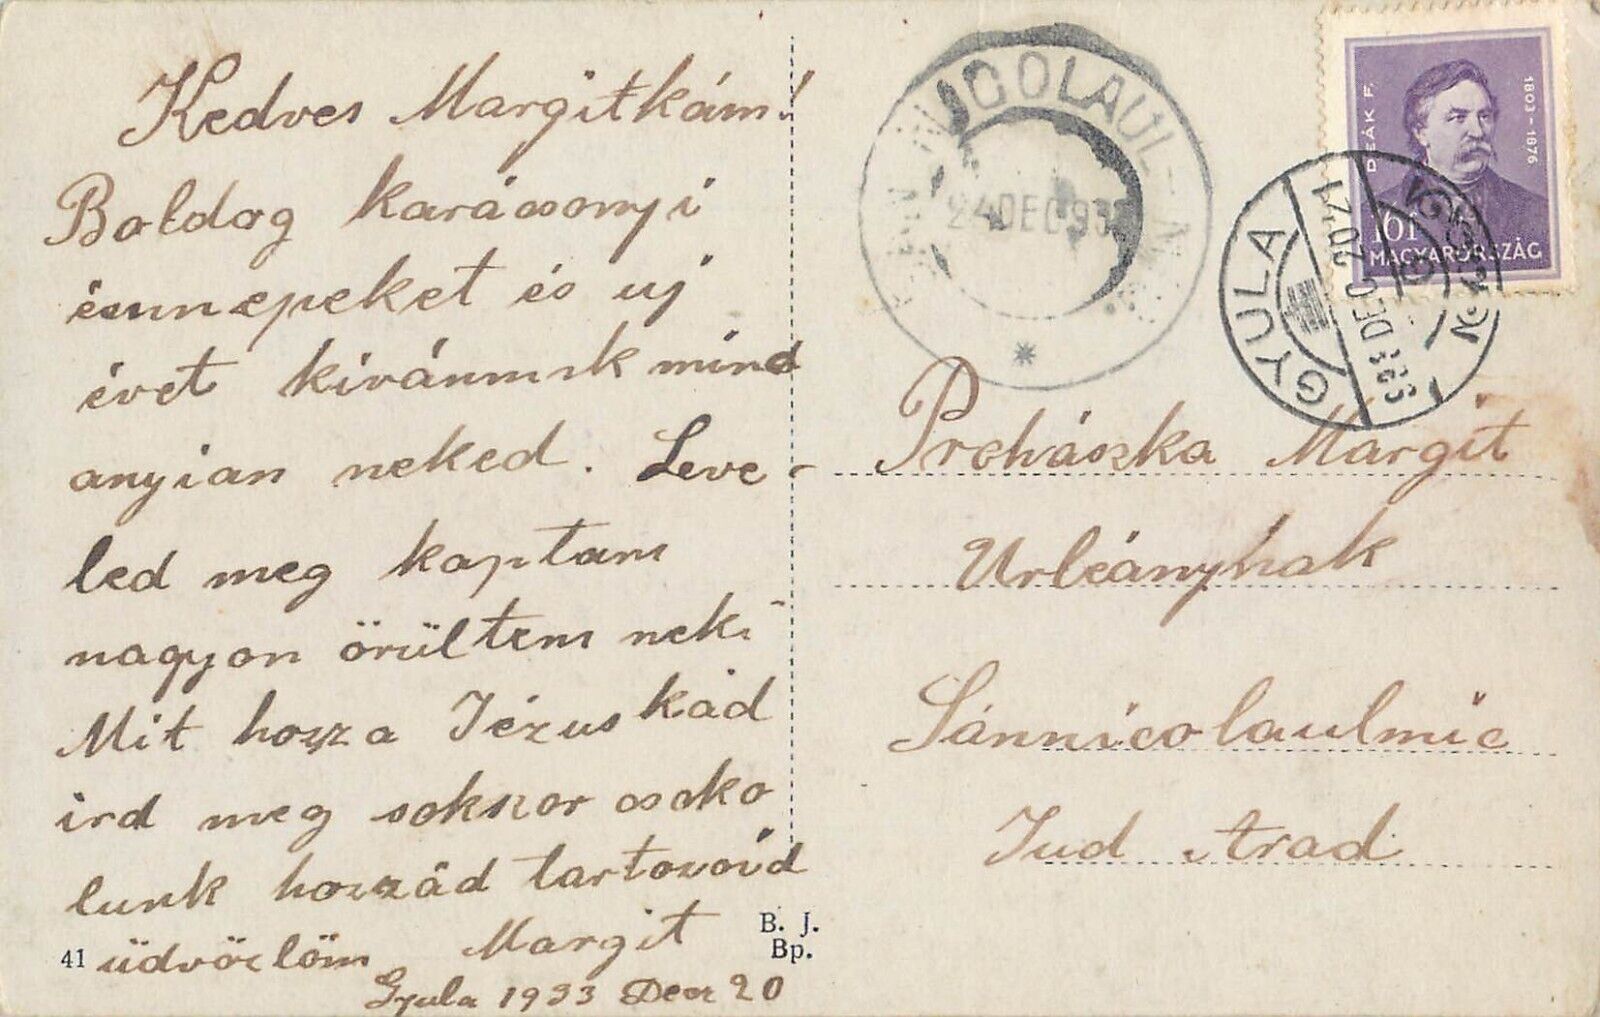 Kedves Margitkám!
Boldog karácsonyi
ünnepeket és uj
évet kivánunk mind
anyian neked. Leve-
led meg kaptam
nagyon örültem neki
Mit hozza Jézuskád
ird meg sokszor csoko
lunk hozzád tartozoid
üdvözlöm Margit
Gyula 1933 Dec 20
41
B. J.
Bp.
NICOLAUL
24 DEC 93
GYULA
933 DEC 20 17
DEÁK F.
1803-1876
10f
MAGYARORSZÁG
Prohászka Margit
Urleánynak
Sánnicolaulmic
Jud Arad